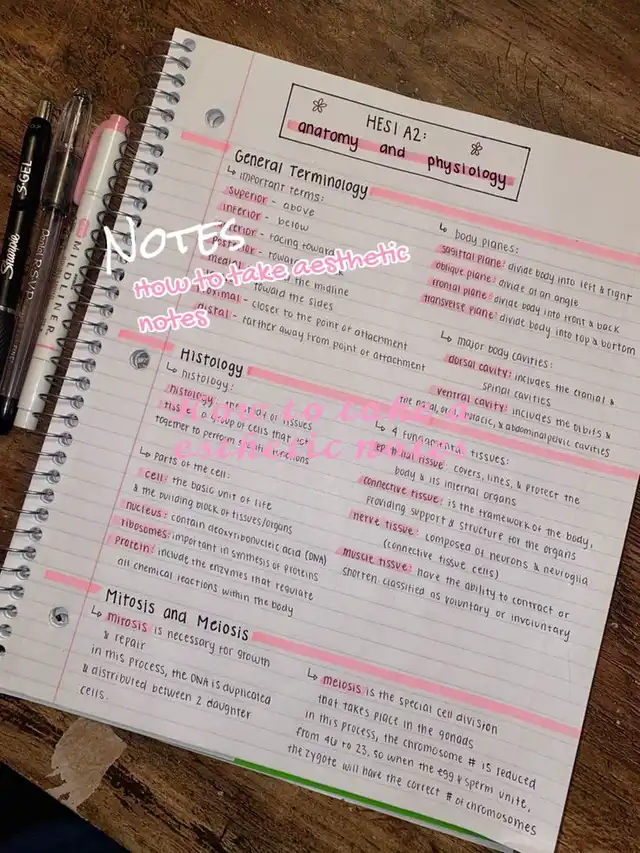 HESI A2:
anatomy and physiology
General Terminology
↳ important terms:
superior - above
inferior - below
terior - facing toward
posterior - towar
the midline
toward the sides
proximal - closer to the point of attachment
distal - farther away from point of attachment
↳ body planes:
sagittal plane: divide body into left & right
oblique plane: divide at an angle
frontal plane: divide body into front & back
transverse plane: divide body into top & bottom
↳ major body cavities:
dorsal cavity: includes the cranial &
spinal cavities
ventral cavity: includes the orbits &
the nasal, oral, thoracic, & abdominalpelvic cavities
Notes
How to take aesthetic
notes
Histology
↳ histology:
histology: the study of tissues
tissue: a group of cells that act
together to perform specific functions
↳ parts of the cell:
cell: the basic unit of life
& the building block of tissues/organs
nucleus: contain deoxyribonucleic acid (DNA)
ribosomes: important in synthesis of proteins
protein: include the enzymes that regulate
all chemical reactions within the body
↳ 4 fundamental tissues:
epithelial tissue: covers, lines, & protect the
body & its internal organs
connective tissue: is the framework of the body,
providing support & structure for the organs
nerve tissue: composed of neurons & neuroglia
(connective tissue cells)
muscle tissue: have the ability to contract or
shorten. classified as voluntary or involuntary
How to take a
esthetic notes
Mitosis and Meiosis
↳ mitosis is necessary for growth
& repair
in this process, the DNA is duplicated
& distributed between 2 daughter
cells.
↳ meiosis is the special cell division
that takes place in the gonads
in this process, the chromosome # is reduced
from 46 to 23, so when the egg & sperm unite,
the zygote will have the correct # of chromosomes
Sharpie S·GEL
R.S.V.P.
MIDLINER